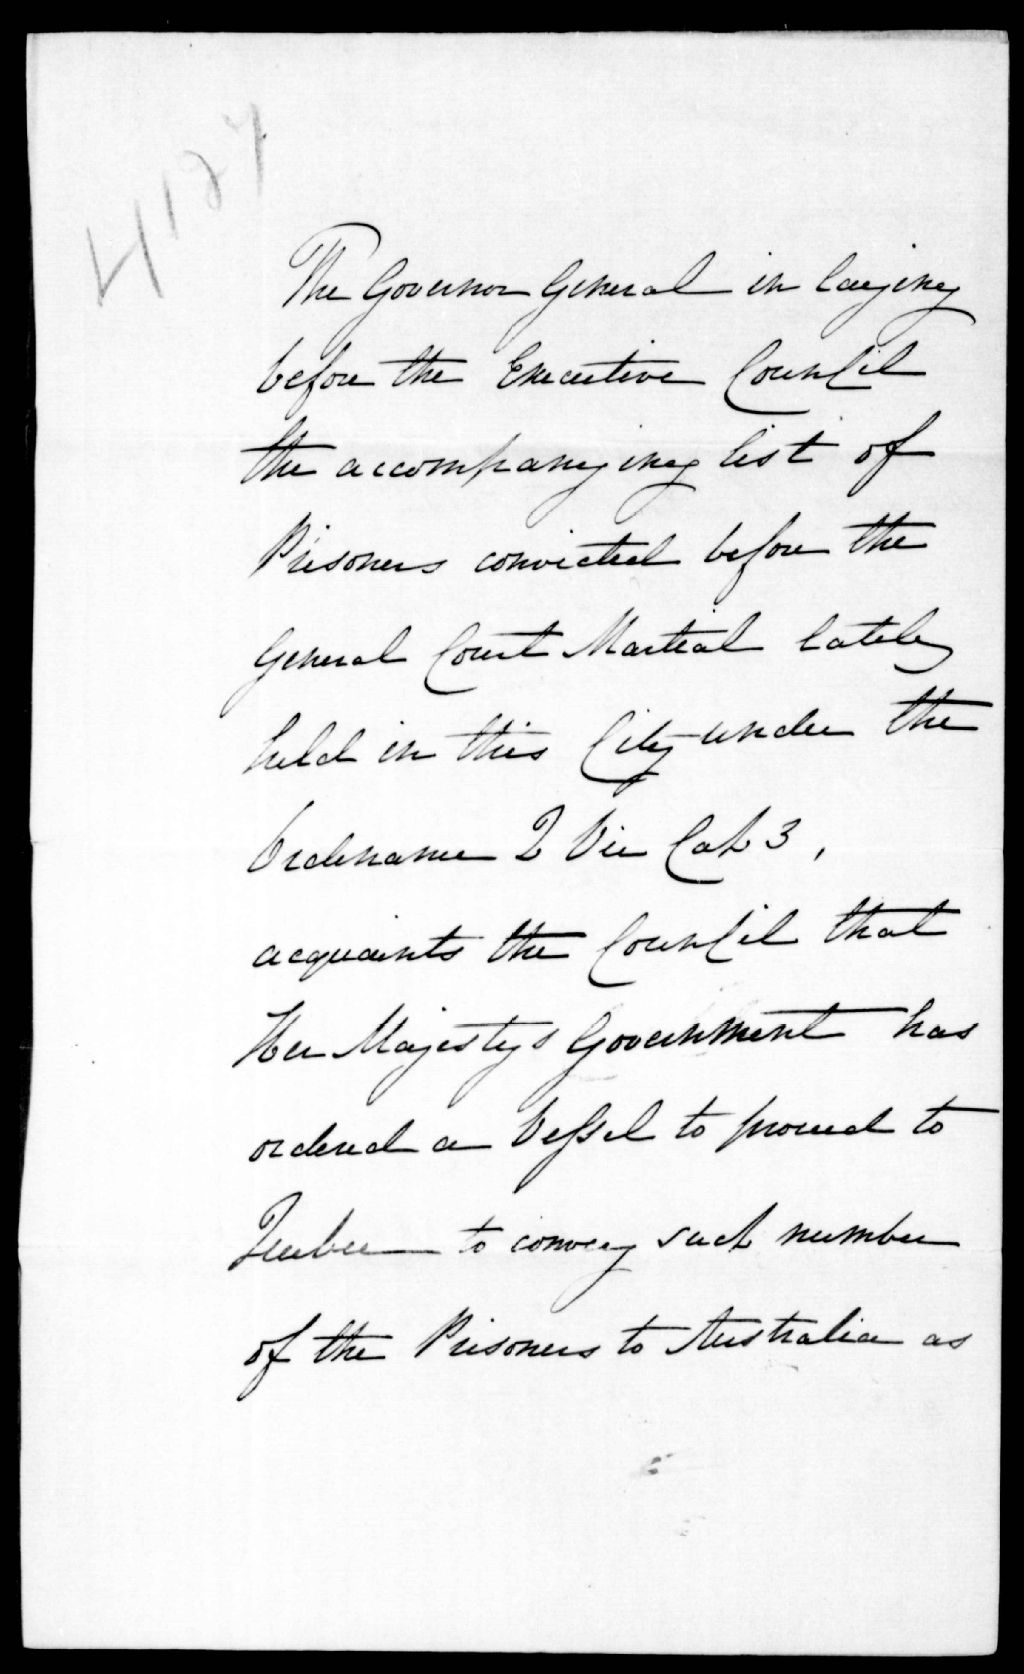 4127
The Governor General in laying
before the Executive Council
the accompanying list of
Prisoners convicted before the
General Court Martial lately
held in this City under the
Ordinance 2 Vic Cap 3,
acquaints the Council that
Her Majestys Government has
ordered a Vessel to proceed to
Quebec to convey such number
of the Prisoners to Australia as